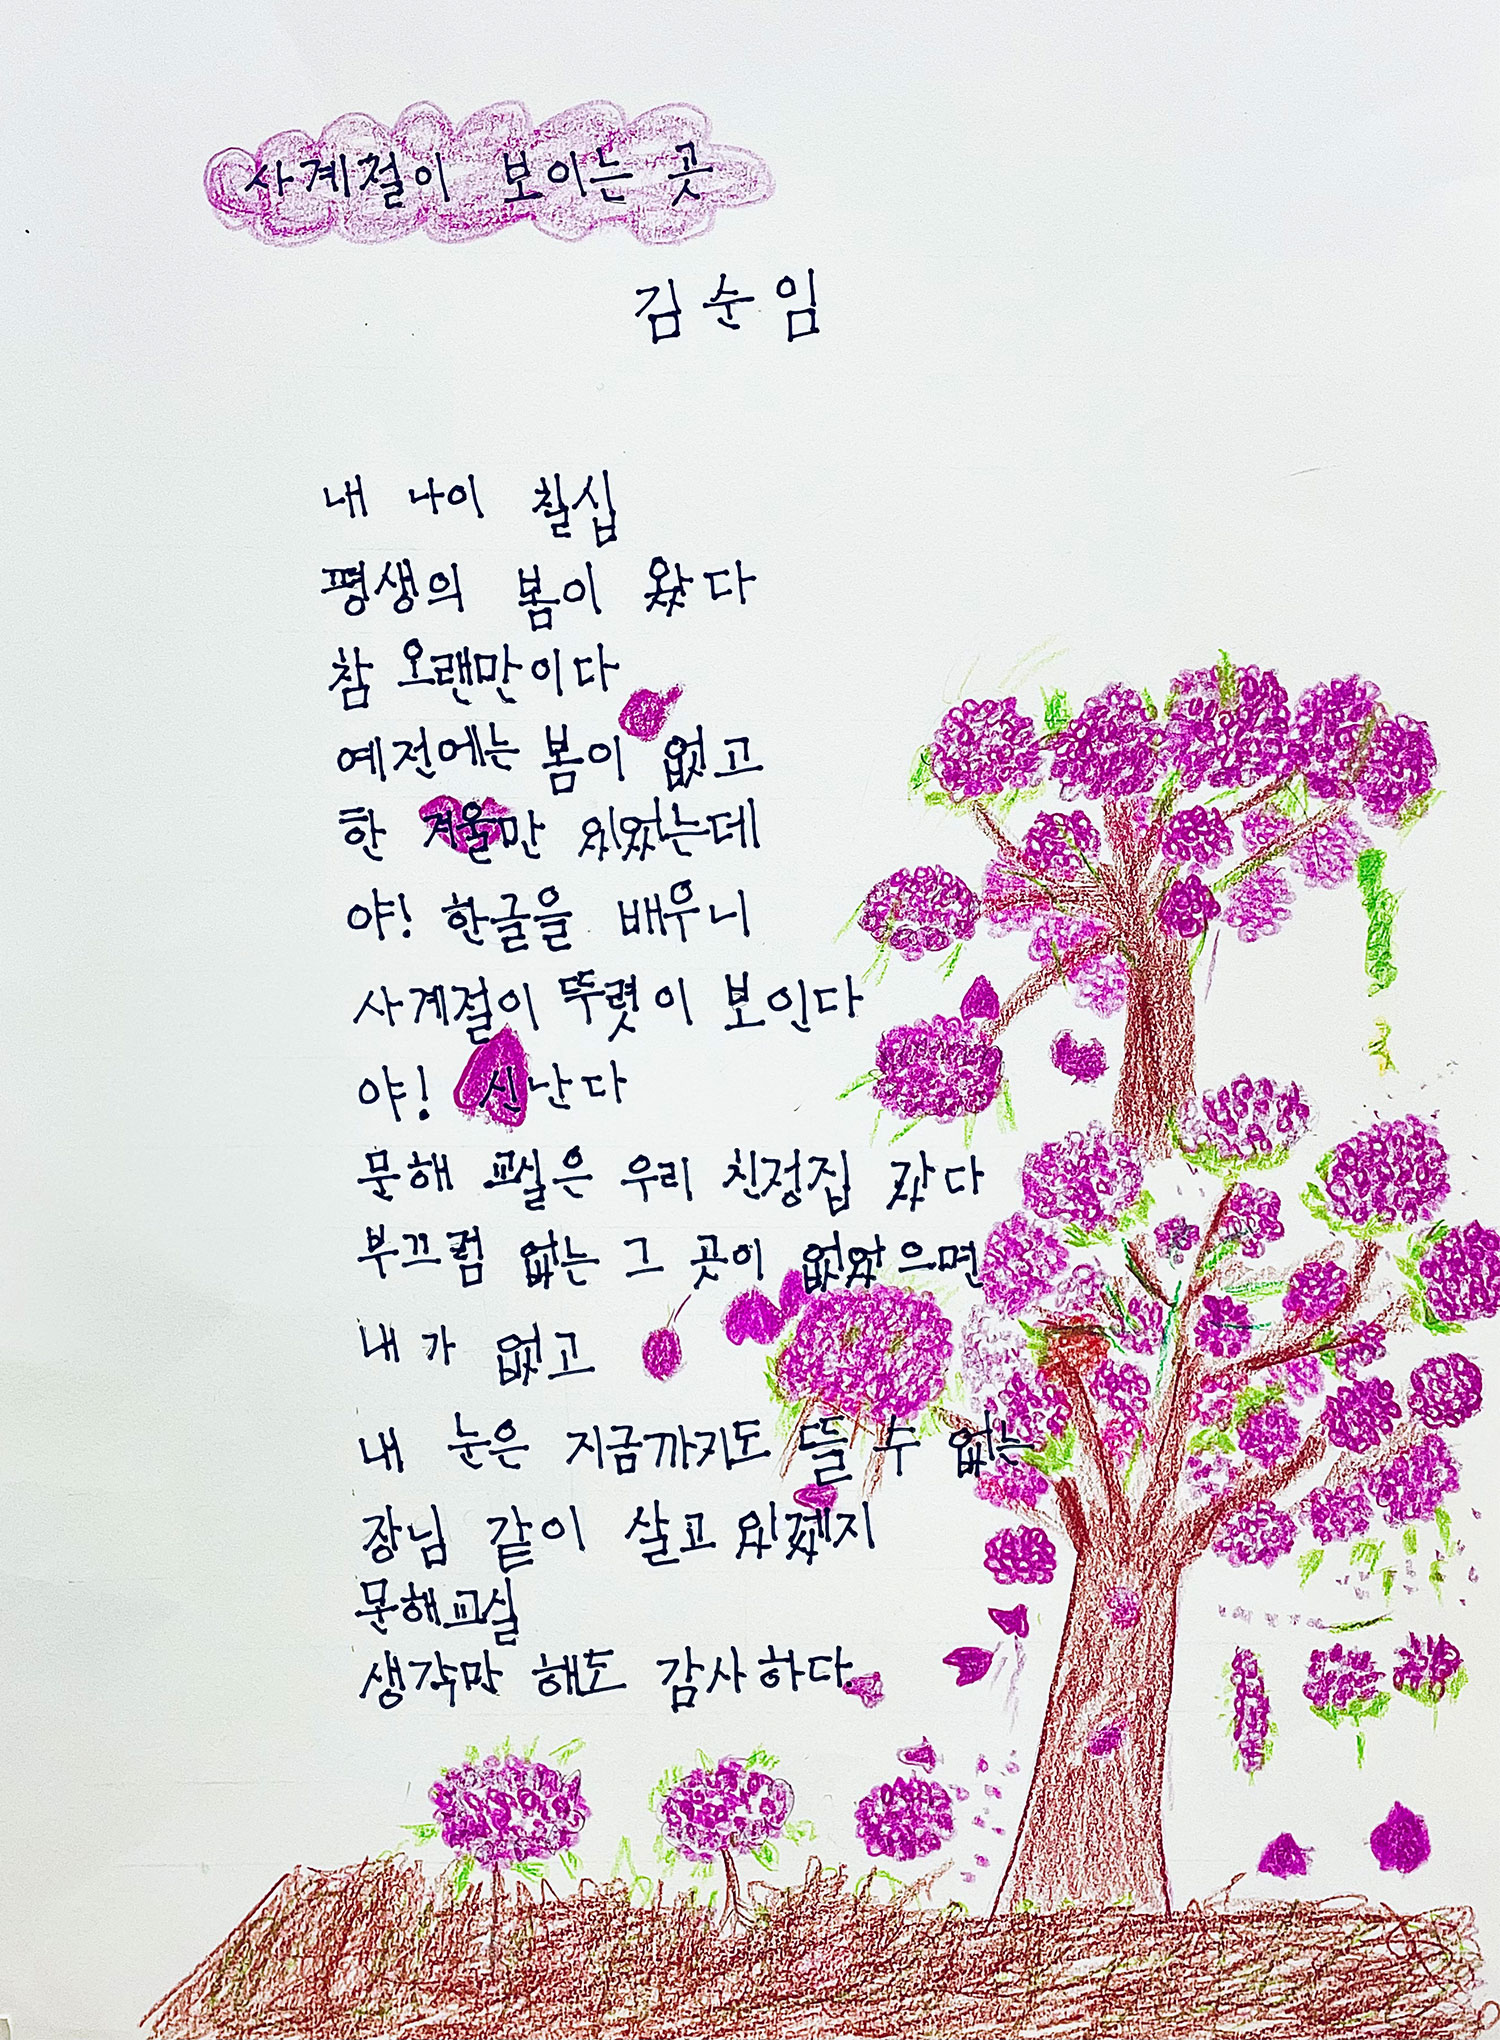 사계절이 보이는 곳
김순임
내 나이 칠십
평생의 봄이 왔다
참 오랜만이다
예전에는 봄이 없고
한 겨울만 있었는데
야! 한글을 배우니
사계절이 뚜렷이 보인다
야! 신난다
문해 교실은 우리 친정집 같다
부끄럼 없는 그 곳이 없었으면
내가 없고
내 눈은 지금까지도 뜰 수 없는
장님 같이 살고 있겠지
문해교실
생각만 해도 감사하다.